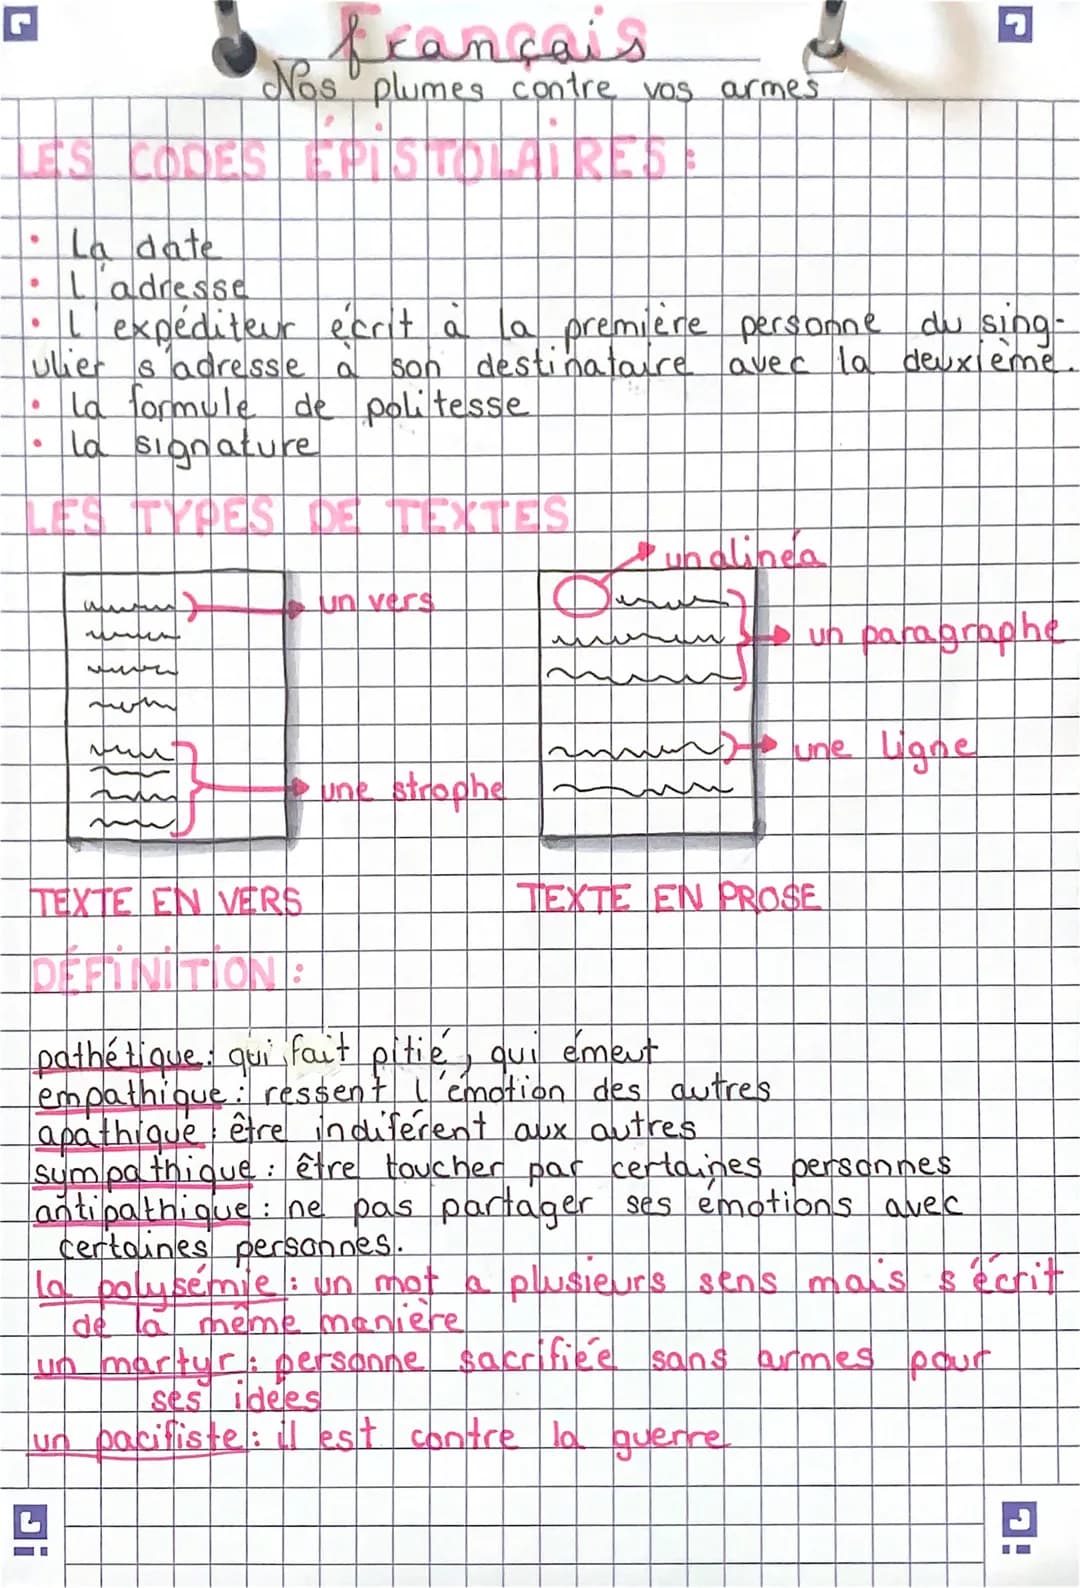 Français
Nos plumes contre vos armes
LES CODES ÉPISTOLAIRES :
• La date
• L'adresse
• L'expéditeur écrit à la première personne du sing-
ulier s'adresse à son destinataire avec la deuxième.
• la formule de politesse
• la signature
LES TYPES DE TEXTES
un alinéa
un vers
un paragraphe
une ligne
une strophe
TEXTE EN VERS
TEXTE EN PROSE
DÉFINITION :
pathétique : qui fait pitié, qui émeut
empathique : ressent l'émotion des autres
apathique : être indiférent aux autres
sympathique : être toucher par certaines personnes
antipathique : ne pas partager ses émotions avec
certaines personnes.
la polysémie : un mot a plusieurs sens mais s'écrit
de la même manière
un martyr : personne sacrifiée sans armes pour
ses idées
un pacifiste : il est contre la guerre